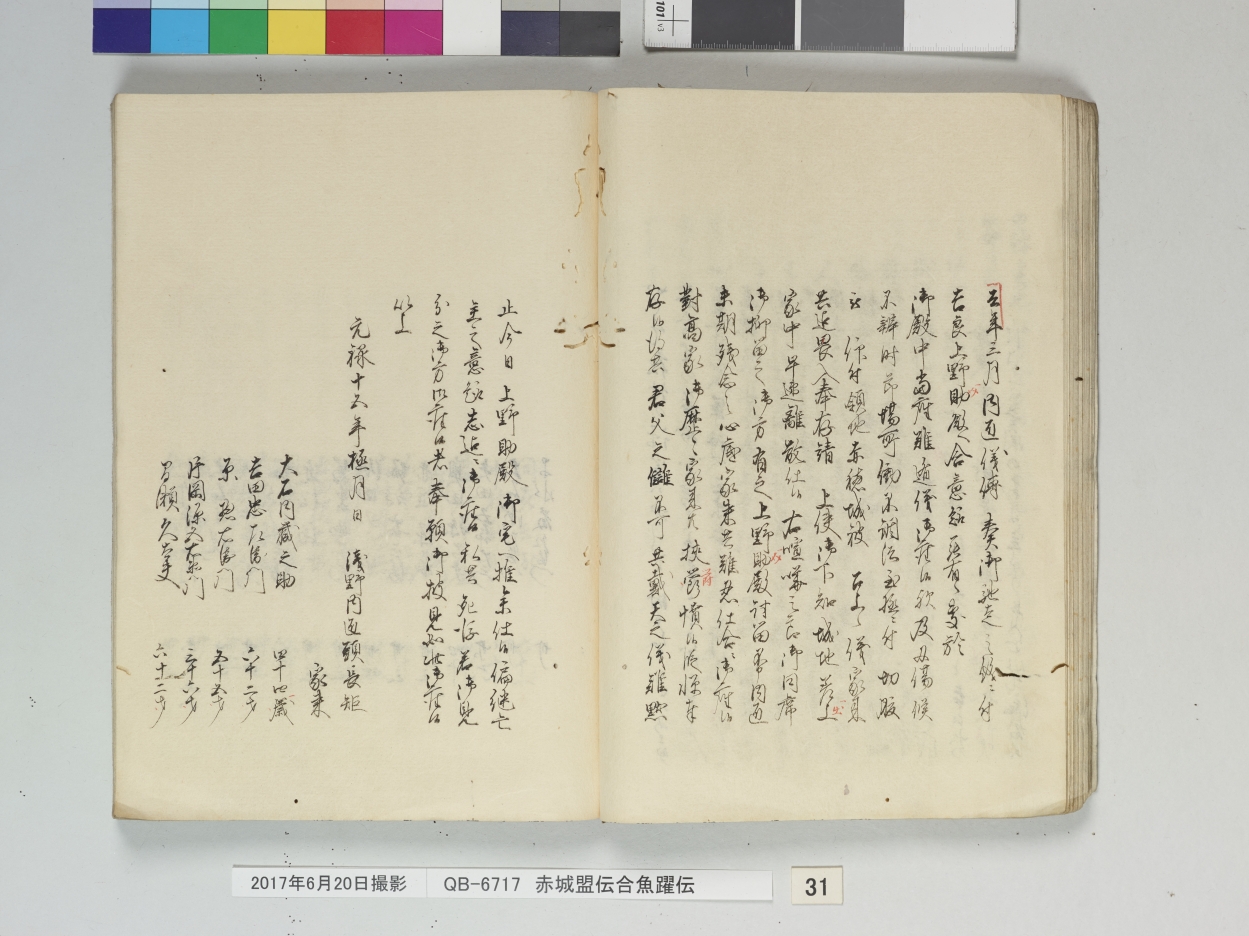 去年三月内匠儀傳奏御馳走之儀ニ付
吉良上野助殿へ含意趣罷有候處於
御殿中當座難遁儀御座候歟及刃傷候
不辨時節場所働不調法至極ニ付切腹
被 仰付領地赤穂城被 召上候儀家来
共迄畏入奉存請 上使御下知城地差上
家中早速離散仕候右喧嘩之節御同席
御抑留之御方有之上野助殿討留不申内匠
末期残念之心底家来共難忍仕合御座候
對高家御歴々家来共挟鬱憤候段憚奉
存候得共君父之讎不可共戴天之儀難黙
止今日上野助殿御宅へ推参仕候偏継亡
主之意趣志迄ニ御座候私共死後若御見
分之御方御座候者奉願御披見如此御座候
以上
元禄十五年極月日 浅野内匠頭長矩
家来
大石内蔵之助 四十四歳
吉田忠左衛門 六十二才
原惣右衛門 五十五才
片岡源五右衛門 三十六才
間瀬久太夫 六十二才
2017年6月20日撮影 QB-6717 赤城盟伝合魚躍伝 31